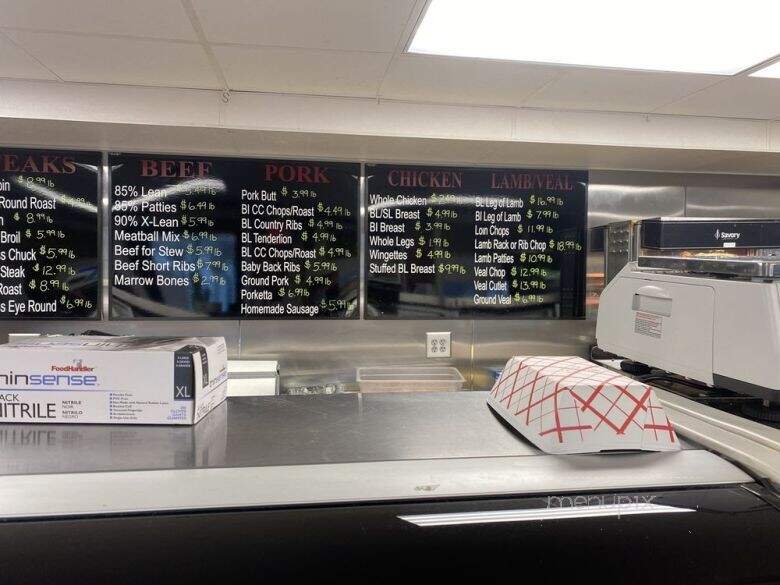 EAKS
$8.99 lb
Round Roast
$8.99 lb
Broil $5.99 lb
s Chuck $5.99 lb
Steak $12.99 lb
oast $8.99 lb
s Eye Round $6.99 lb
BEEF
85% Lean
85% Patties $6.49 lb
90% X-Lean $5.99 lb
Meatball Mix $6.99 lb
Beef for Stew $5.99 lb
Beef Short Ribs $7.99 lb
Marrow Bones $2.99 lb
PORK
Pork Butt $3.99 lb
BI CC Chops/Roast $4.49 lb
BL Country Ribs $4.99 lb
BL Tenderlion $4.99 lb
BL CC Chops/Roast $4.99 lb
Baby Back Ribs $5.99 lb
Ground Pork $4.99 lb
Porketta $6.99 lb
Homemade Sausage $5.99 lb
CHICKEN
Whole Chicken
BL/SL Breast $4.99 lb
BI Breast $3.99 lb
Whole Legs $1.99 lb
Wingettes $4.99 lb
Stuffed BL Breast $9.99 lb
LAMB/VEAL
BL Leg of Lamb $16.99 lb
BI Leg of Lamb $7.99 lb
Loin Chops $11.99 lb
Lamb Rack or Rib Chop $18.99 lb
Lamb Patties $10.99 lb
Veal Chop $12.99 lb
Veal Cutlet $13.99 lb
Ground Veal $6.99 lb
Savory
FoodHandler
hinsense
ACK
NITRILE
NITRILE
NOIR
NITRILO
NEGRO
XL
menupix